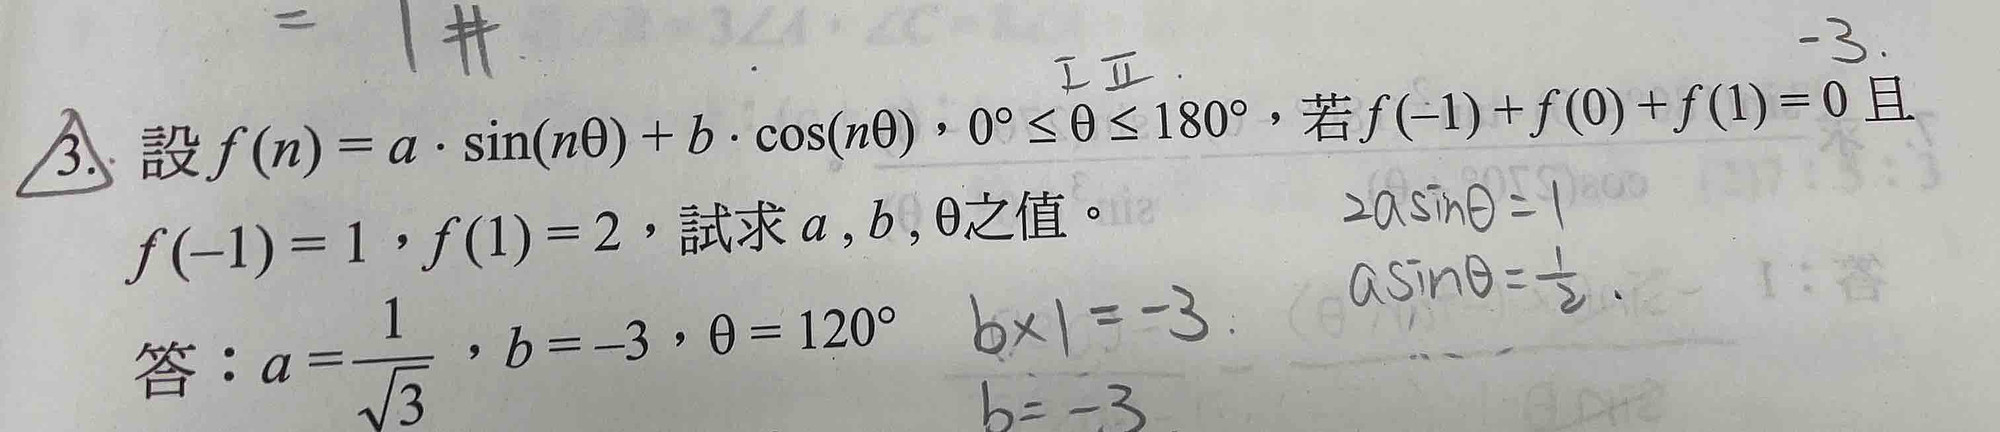 = 1 #
-3.
I II.
3. 設 f(n) = a · sin(nθ) + b · cos(nθ),0° ≤ θ ≤ 180°,若 f(–1) + f(0) + f(1) = 0 且
f(–1) = 1,f(1) = 2,試求 a , b , θ之值。
2asinθ = 1
asinθ = 1/2.
答:a = 1/√3,b = –3,θ = 120°
b×1 = -3.
b = -3